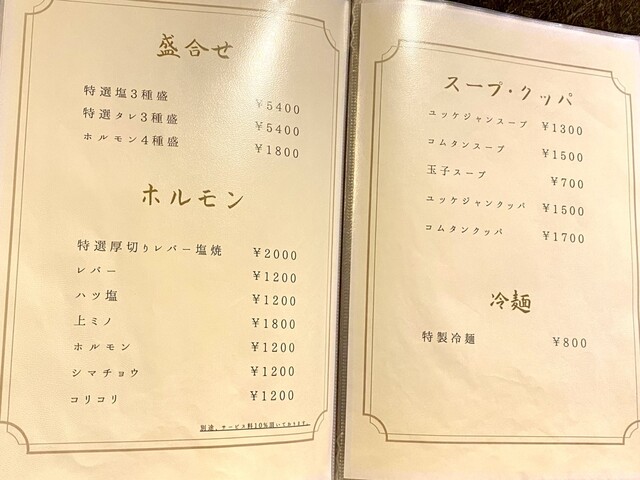 盛合せ
特選塩3種盛 ¥5400
特選タレ3種盛 ¥5400
ホルモン4種盛 ¥1800
ホルモン
特選厚切りレバー塩焼 ¥2000
レバー ¥1200
ハツ塩 ¥1200
上ミノ ¥1800
ホルモン ¥1200
シマチョウ ¥1200
コリコリ ¥1200
別途、サービス料10%頂いております。
スープ・クッパ
ユッケジャンスープ ¥1300
コムタンスープ ¥1500
玉子スープ ¥700
ユッケジャンクッパ ¥1500
コムタンクッパ ¥1700
冷麺
特製冷麺 ¥800